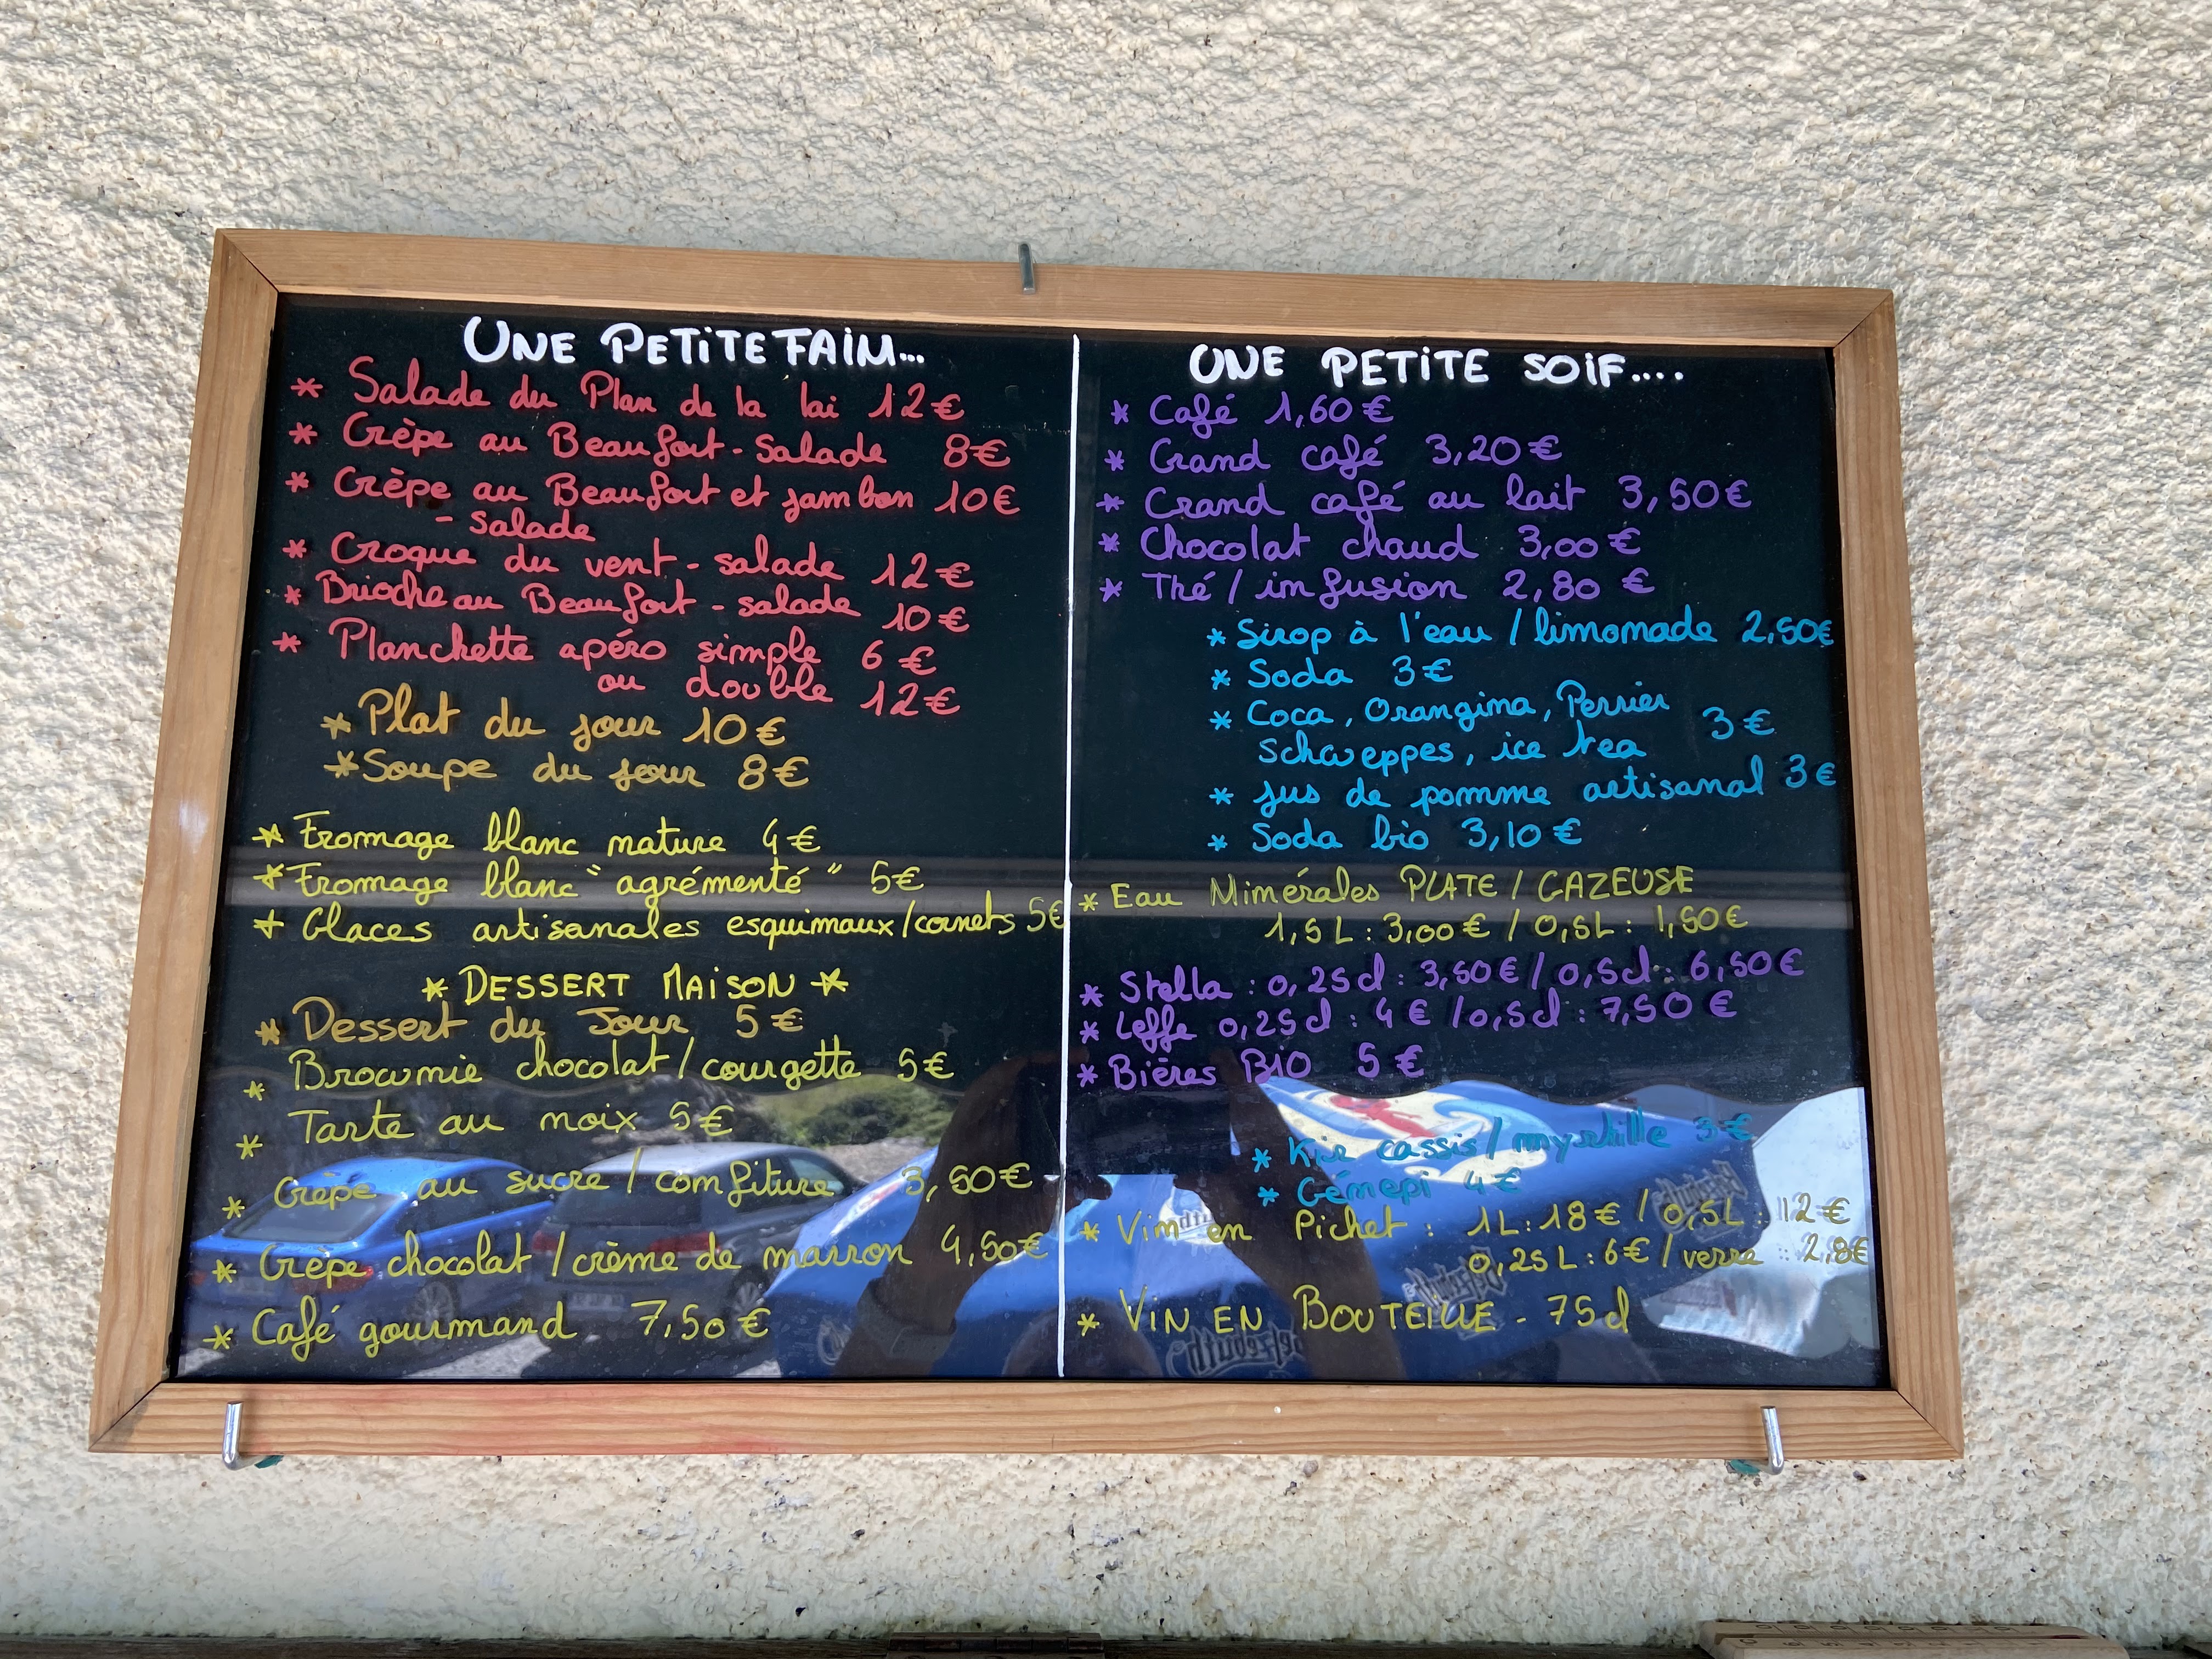 UNE PETITE FAIM...
* Salade du Plan de la lai 12€
* Crèpe au Beaufort - Salade 8€
* Crèpe au Beaufort et jambon 10€
- salade
* Croque du vent - salade 12€
* Brioche au Beaufort - salade 10€
* Planchette apéro simple 6€
ou double 12€
* Plat du jour 10€
* Soupe du jour 8€
* Fromage blanc nature 4€
* Fromage blanc "agrémenté" 5€
* Glaces artisanales esquimaux/cornets 5€
* DESSERT MAISON *
* Dessert du Jour 5€
* Brownie chocolat/courgette 5€
* Tarte au noix 5€
* Crèpe au sucre / confiture 3,50€
* Crèpe chocolat / crème de marron 4,50€
* Café gourmand 7,50€
UNE PETITE SOIF....
* Café 1,60€
* Grand café 3,20€
* Grand café au lait 3,50€
* Chocolat chaud 3,00€
* Thé / infusion 2,80 €
* Sirop à l'eau / limonade 2,50€
* Soda 3€
* Coca, Orangina, Perrier
schweppes, ice tea 3€
* jus de pomme artisanal 3€
* Soda bio 3,10€
* Eau Minérales PLATE / GAZEUSE
1,5L : 3,00€ / 0,5L : 1,50€
* Stella : 0,25cl : 3,50€ / 0,5cl : 6,50€
* Leffe 0,25cl : 4€ / 0,5cl : 7,50€
* Bières BIO 5€
* Kir cassis / myrtille 3€
* Génepi 4€
* Vin en Pichet : 1L : 18€ / 0,5L : 12€
0,25L : 6€ / verre : 2,8€
* VIN EN BOUTEILLE - 75cl